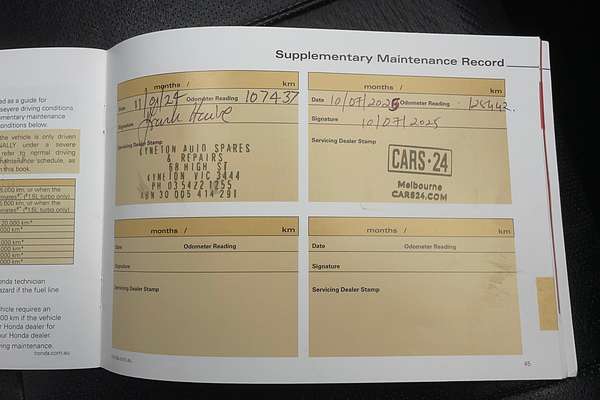 ed as a guide for
severe driving conditions.
ementary maintenance
onditions below.
the vehicle is only driven
NALLY under a severe
refer to normal driving
maintenance schedule, as
this book.
5,000 km, or when the
(*1.5L turbo only)
5,000 km, or when the
(*1.5L turbo only)
20,000 km*
000 km*
000 km*
000 km*
000 km*
onda technician
azard if the fuel line
hicle requires an
00 km if the vehicle
ur Honda dealer for
our Honda dealer
ving maintenance.
honda.com.au
Supplementary Maintenance Record
months / km
Date 11/01/24 Odometer Reading 107437
Signature
Servicing Dealer Stamp
KYNETON AUTO SPARES
& REPAIRS
68 HIGH ST
KYNETON VIC 3444
PH 03 5422 1255
ABN 30 005 414 291
months / km
Date 10/07/2025 Odometer Reading
Signature 10/07/2025
Servicing Dealer Stamp
CARS·24
Melbourne
CARS24.COM
months / km
Date Odometer Reading
Signature
Servicing Dealer Stamp
months / km
Date Odometer Reading
Signature
Servicing Dealer Stamp
honda.com.au
45